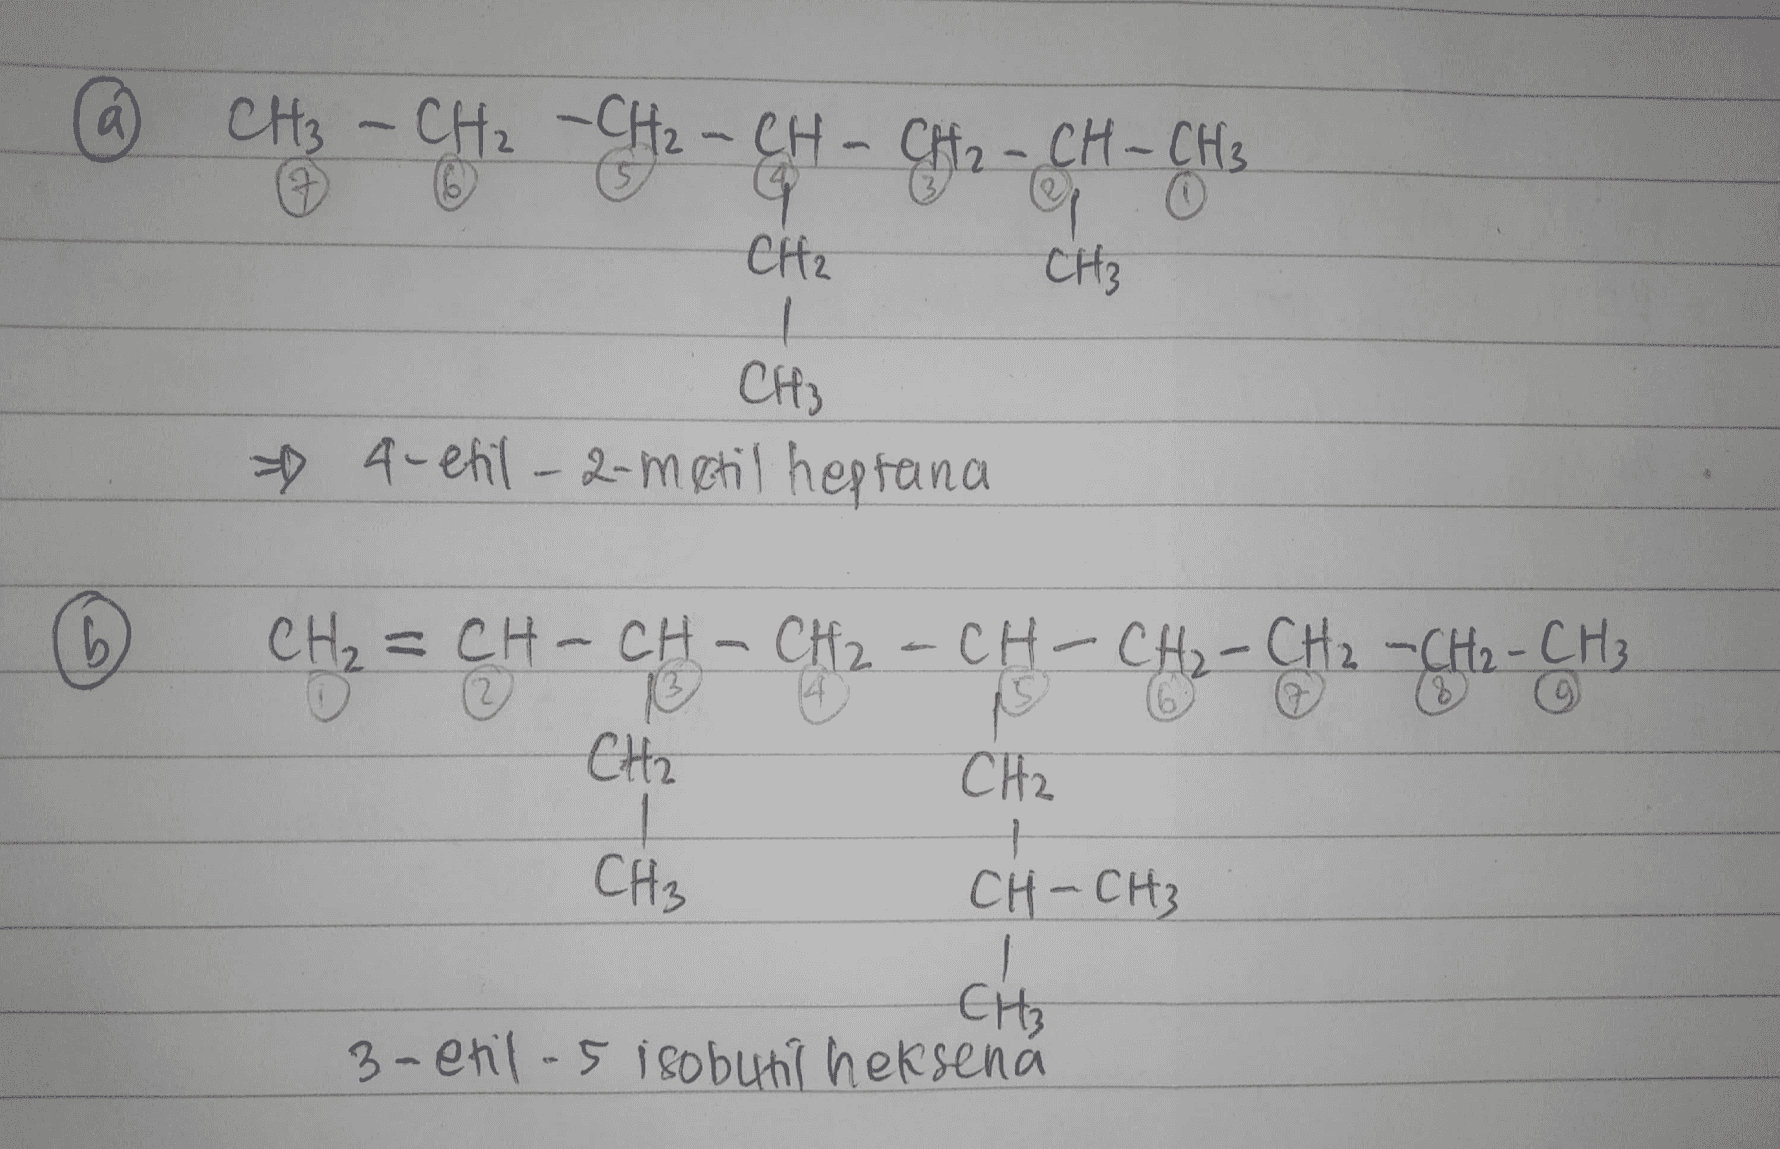 a CH3 - CH2 - CH2 - CH - CH2 - CH - CH3
7 6 5 4 3 2 1
CH2 CH3
|
CH3
⇒ 4-etil - 2-metil heptana
b CH2 = CH - CH - CH2 - CH - CH2 - CH2 - CH2 - CH3
1 2 3 4 5 6 7 8 9
CH2 CH2
| |
CH3 CH - CH3
|
CH3
3-etil - 5 isobutil heksena